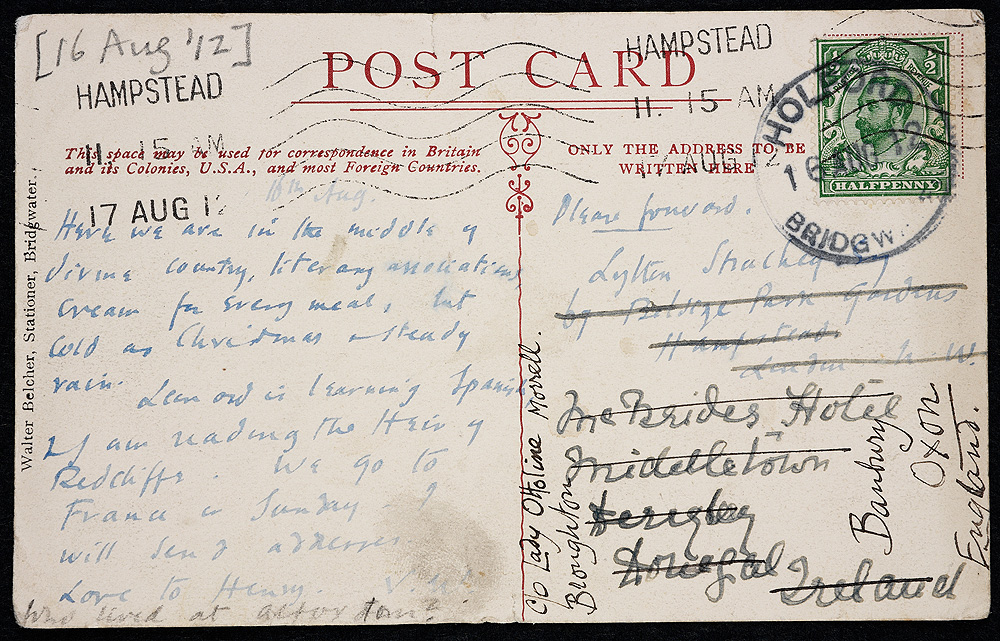 [16 Aug '12]
HAMPSTEAD
11. 15 AM
17 AUG 12
HAMPSTEAD
11. 15 AM
17 AUG 12
POST CARD
This space may be used for correspondence in Britain
and its Colonies, U.S.A., and most Foreign Countries.
ONLY THE ADDRESS TO BE
WRITTEN HERE
HALFPENNY
HOLFORD
16 AU 12
BRIDGW
Walter Belcher, Stationer, Bridgwater.
16th Aug.
Here we are in the middle of
divine country, literary associations
cream for every meal, but
cold as Christmas & steady
rain.
Leonard is learning Spanish
I am reading the Heir of
Redcliffe. We go to
France on Sunday &
will send addresses
Love to Henry. V.
Who lived at alfoxton?
Please forward.
Lytton Strachey
69 Belsize Park Gardens
Hampstead
London N. W.
McBrides Hotel
Middletown
Derrybeg
Donegal
Ireland
c/o Lady Ottoline Morrell.
Broughton
Banbury
Oxon
England.